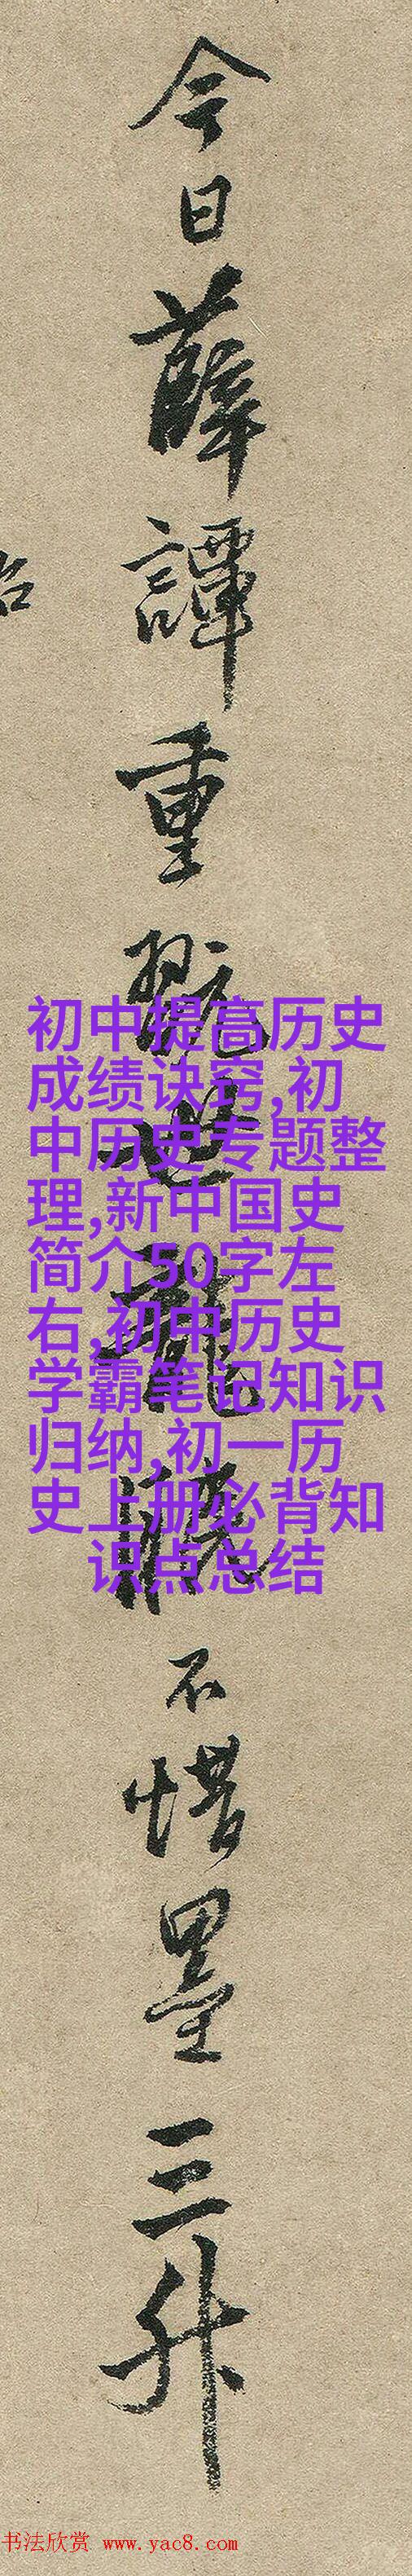 今日薛譚重翫不惜墨三升
初中提高历史
成绩诀窍,初
中历史专题整
理,新中国史
简介50字左
右,初中历史
学霸笔记知识
归纳,初一历
史上册必背知
识点总结
书法欣赏 www.yac8.com